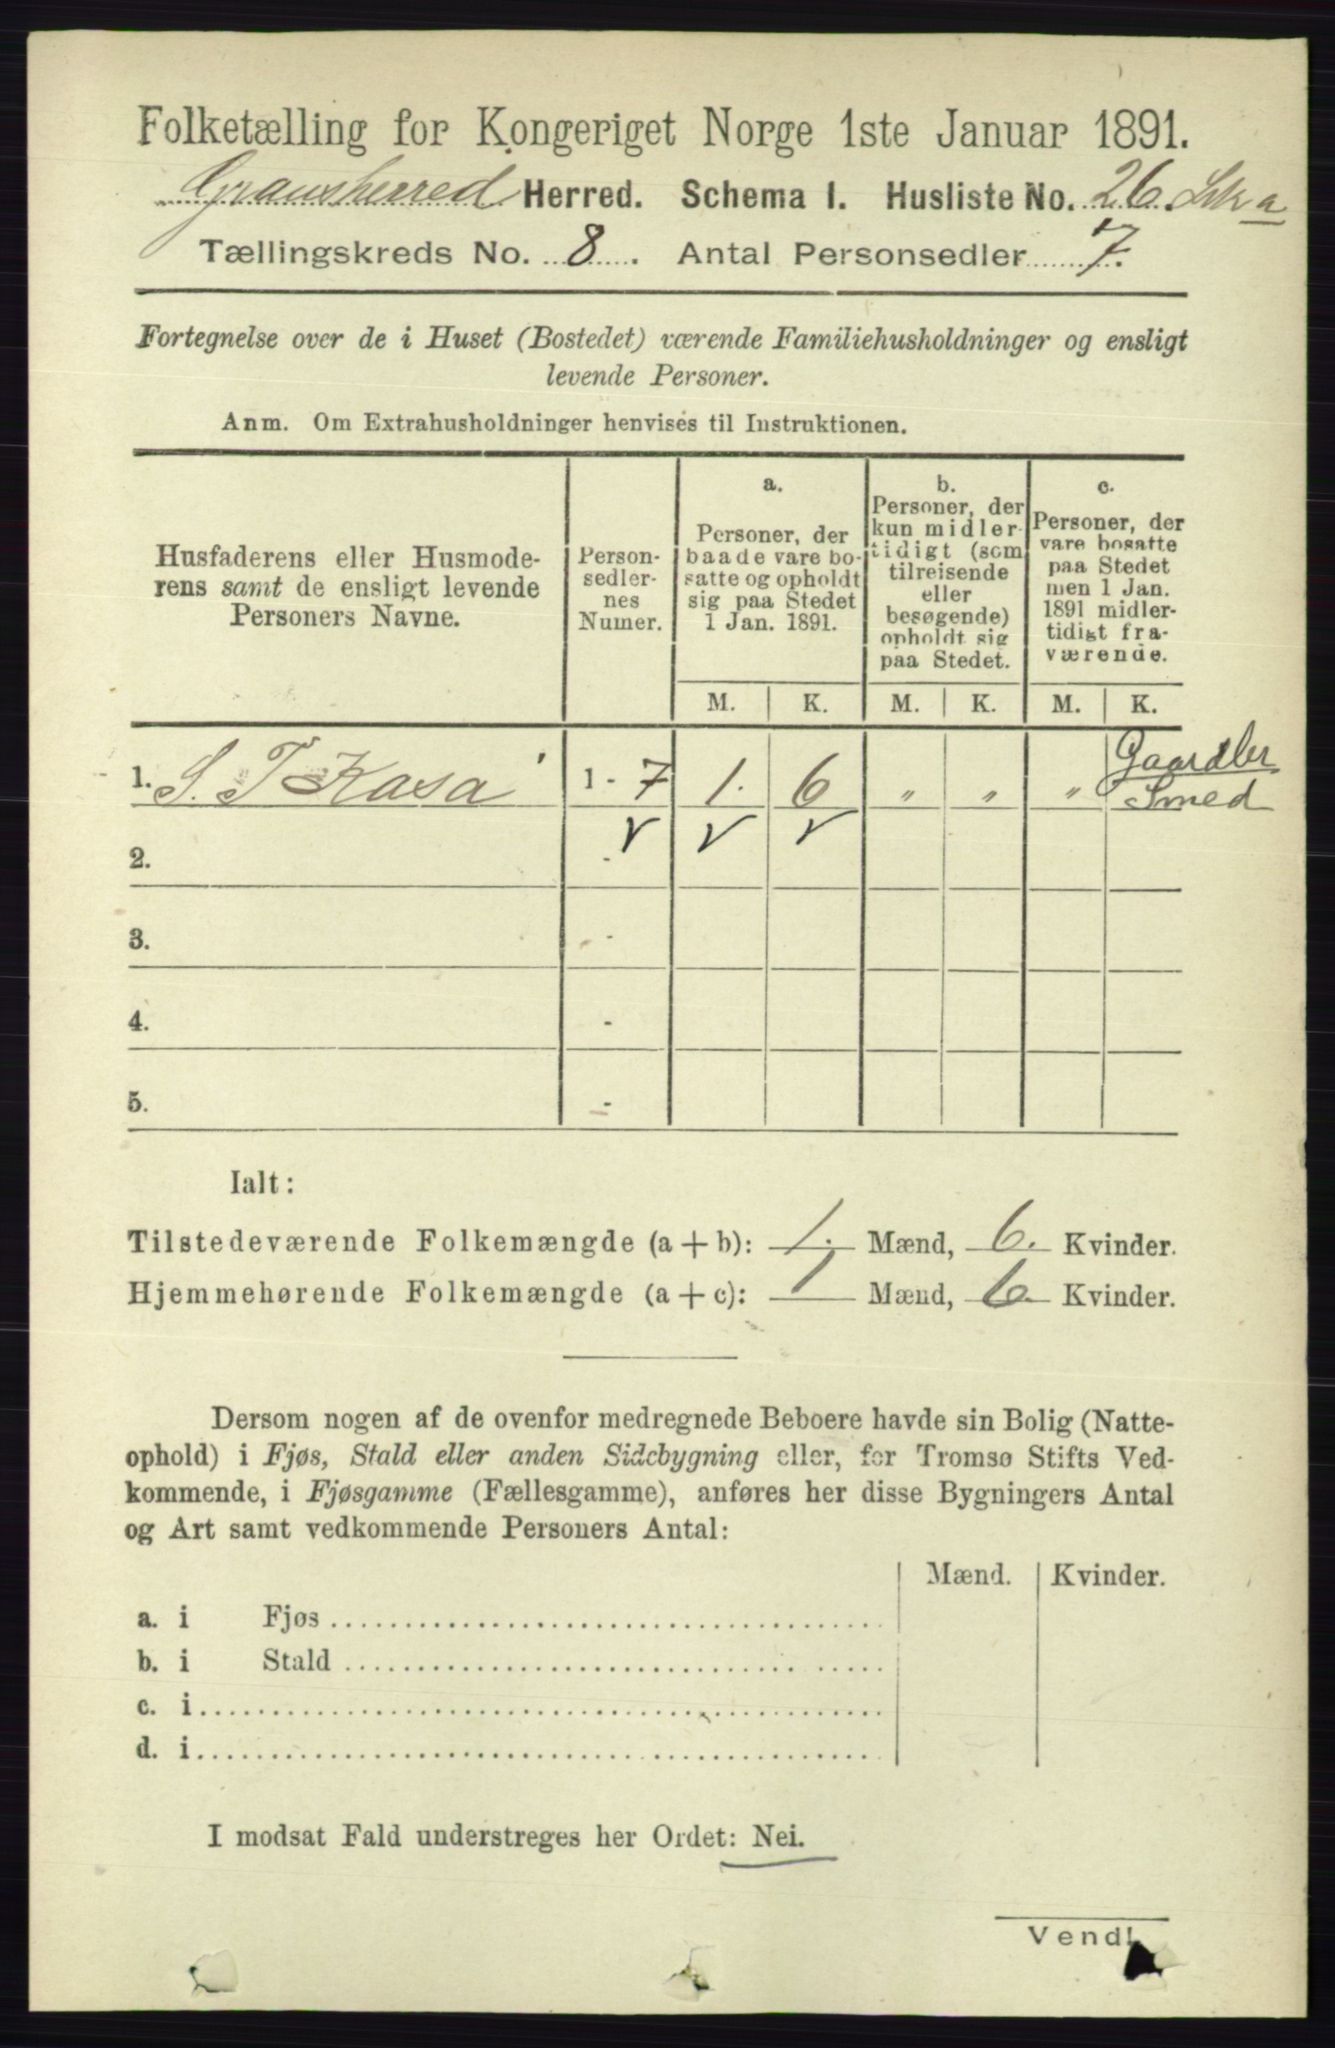 Folketælling for Kongeriget Norge 1ste Januar 1891.
Gransherred Herred. Schema I. Husliste No. 26.
Tællingskreds No. 8. Antal Personsedler 7.
Fortegnelse over de i Huset (Bostedet) værende Familiehusholdninger og ensligt
levende Personer.
Anm. Om Extrahusholdninger henvises til Instruktionen.
Husfaderens eller Husmode-
rens samt de ensligt levende
Personers Navne.
Person-
sedler-
nes
Numer.
a.
Personer, der
baade vare bo-
satte og opholdt
sig paa Stedet
1 Jan. 1891.
b.
Personer, der
kun midler-
tidigt (som
tilreisende
eller
besøgende)
opholdt sig
paa Stedet.
c.
Personer, der
vare bosatte
paa Stedet
men 1 Jan.
1891 midler-
tidigt fra-
værende.
M. K. M. K. M. K.
Gaardbr
1. S. T Kasa 1 - 7 1. 6 " " " Smed
2. -
3. -
4. -
5. -
Ialt:
Tilstedeværende Folkemængde (a + b): 1. Mænd, 6. Kvinder.
Hjemmehørende Folkemængde (a + c): 1 Mænd, 6 Kvinder.
Dersom nogen af de ovenfor medregnede Beboere havde sin Bolig (Natte-
ophold) i Fjøs, Stald eller anden Sidebygning eller, for Tromsø Stifts Ved-
kommende, i Fjøsgamme (Fællesgamme), anføres her disse Bygningers Antal
og Art samt vedkommende Personers Antal:
Mænd. Kvinder.
a. i Fjøs
b. i Stald
c. i
d. i
I modsat Fald understreges her Ordet: Nei.
Vend!